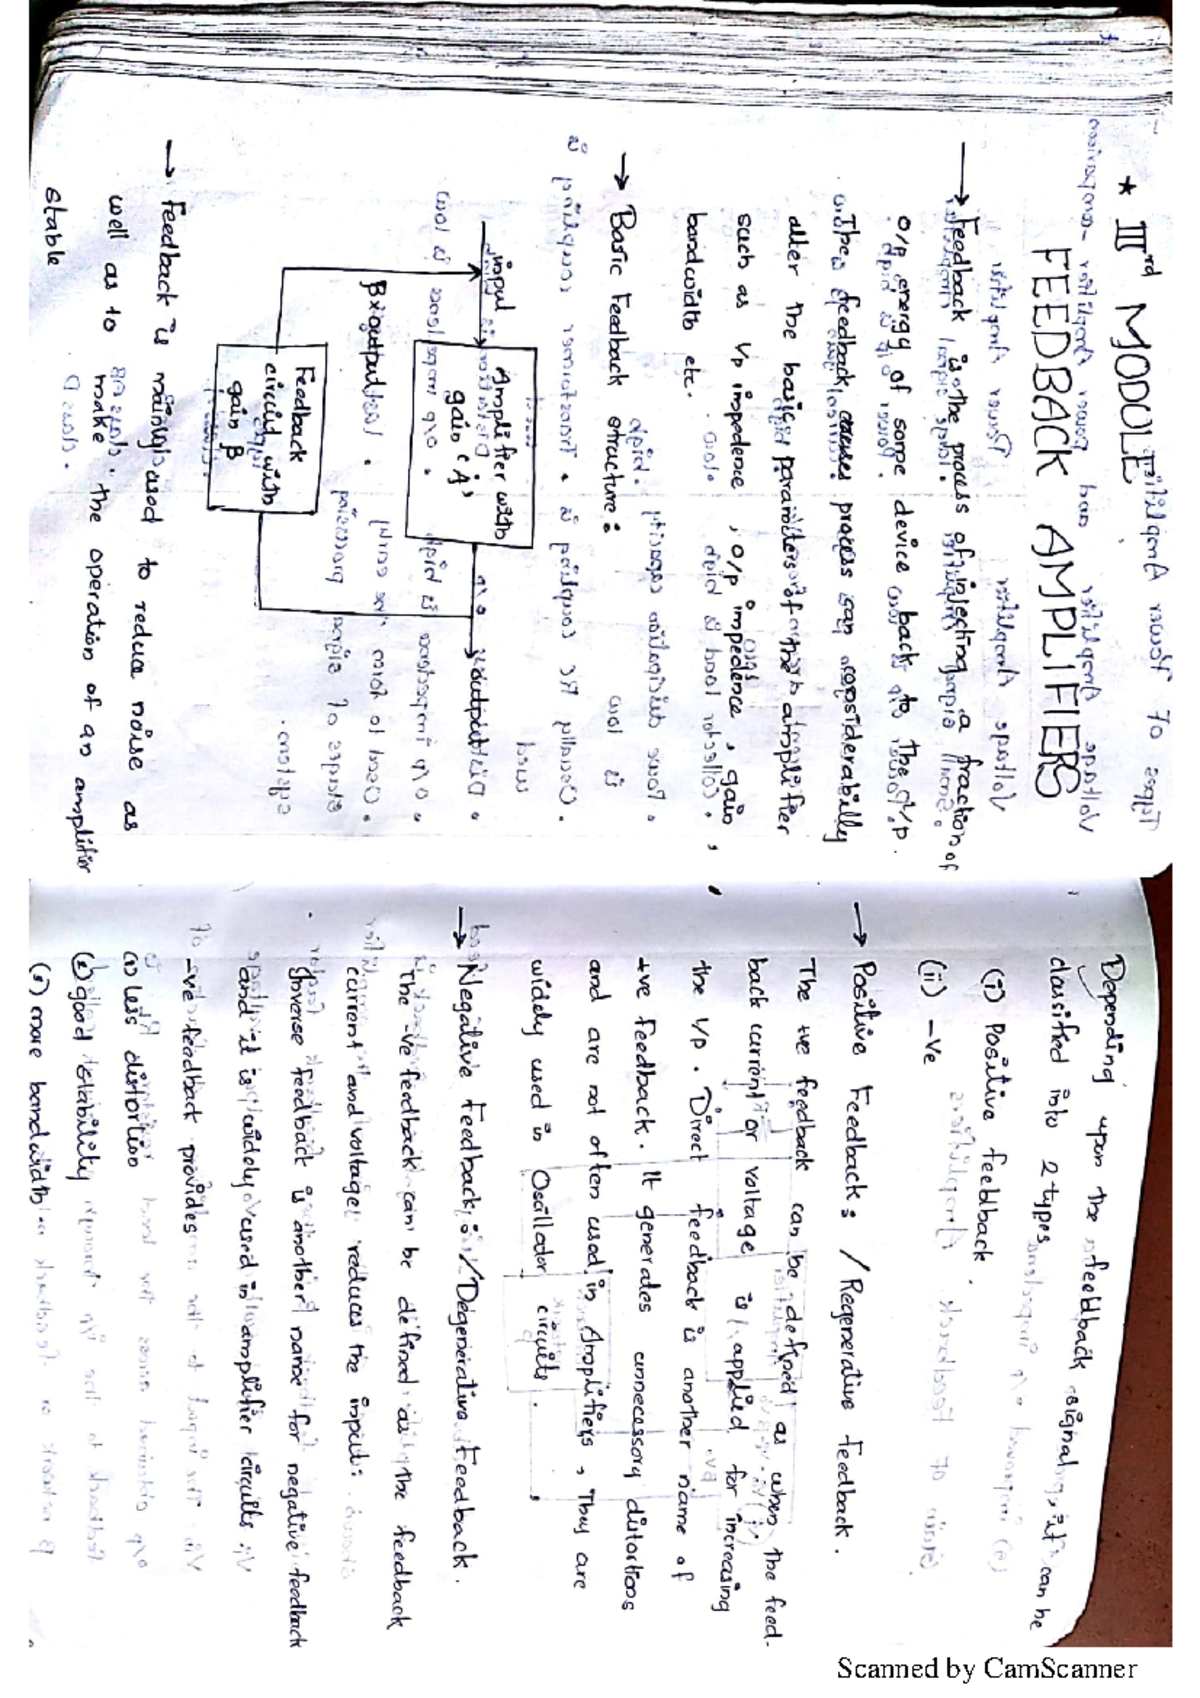 ★ IIIrd MODULE
FEEDBACK AMPLIFIERS
→ Feedback is the process of injecting a fraction of
o/p energy of some device back to the i/p.
The feedback process can considerabily
alter the basic parameters of the amplifier
such as i/p impedence, o/p impedence, gain,
bandwidth etc.
→ Basic Feedback structure:
input
Amplifier with
gain 'A'
output
β×output
Feedback
circuit with
gain β
→ Feedback is mainly used to reduce noise as
well as to make the operation of an amplifier
stable
Depending upon the feedback signal, it can be
classified into 2 types
(i) Positive feedback.
(ii) -ve
→ Positive Feedback: / Regenerative Feedback.
The +ve feedback can be defined as when the feed-
back current or voltage is applied for increasing
the i/p. Direct feedback is another name of
+ve feedback. It generates unnecessory distortions
and are not often used in Amplifiers, They are
widely used in Oscillator circuits.
→ Negative Feedback: / Degenerative Feedback.
The -ve feedback can be defined as the feedback
current and voltage reduces the input.
Inverse feedback is another name for negative feedback
and it is widely used in amplifier circuits
-ve feedback provides
less distortion
good stability
more bandwidth
Scanned by CamScanner